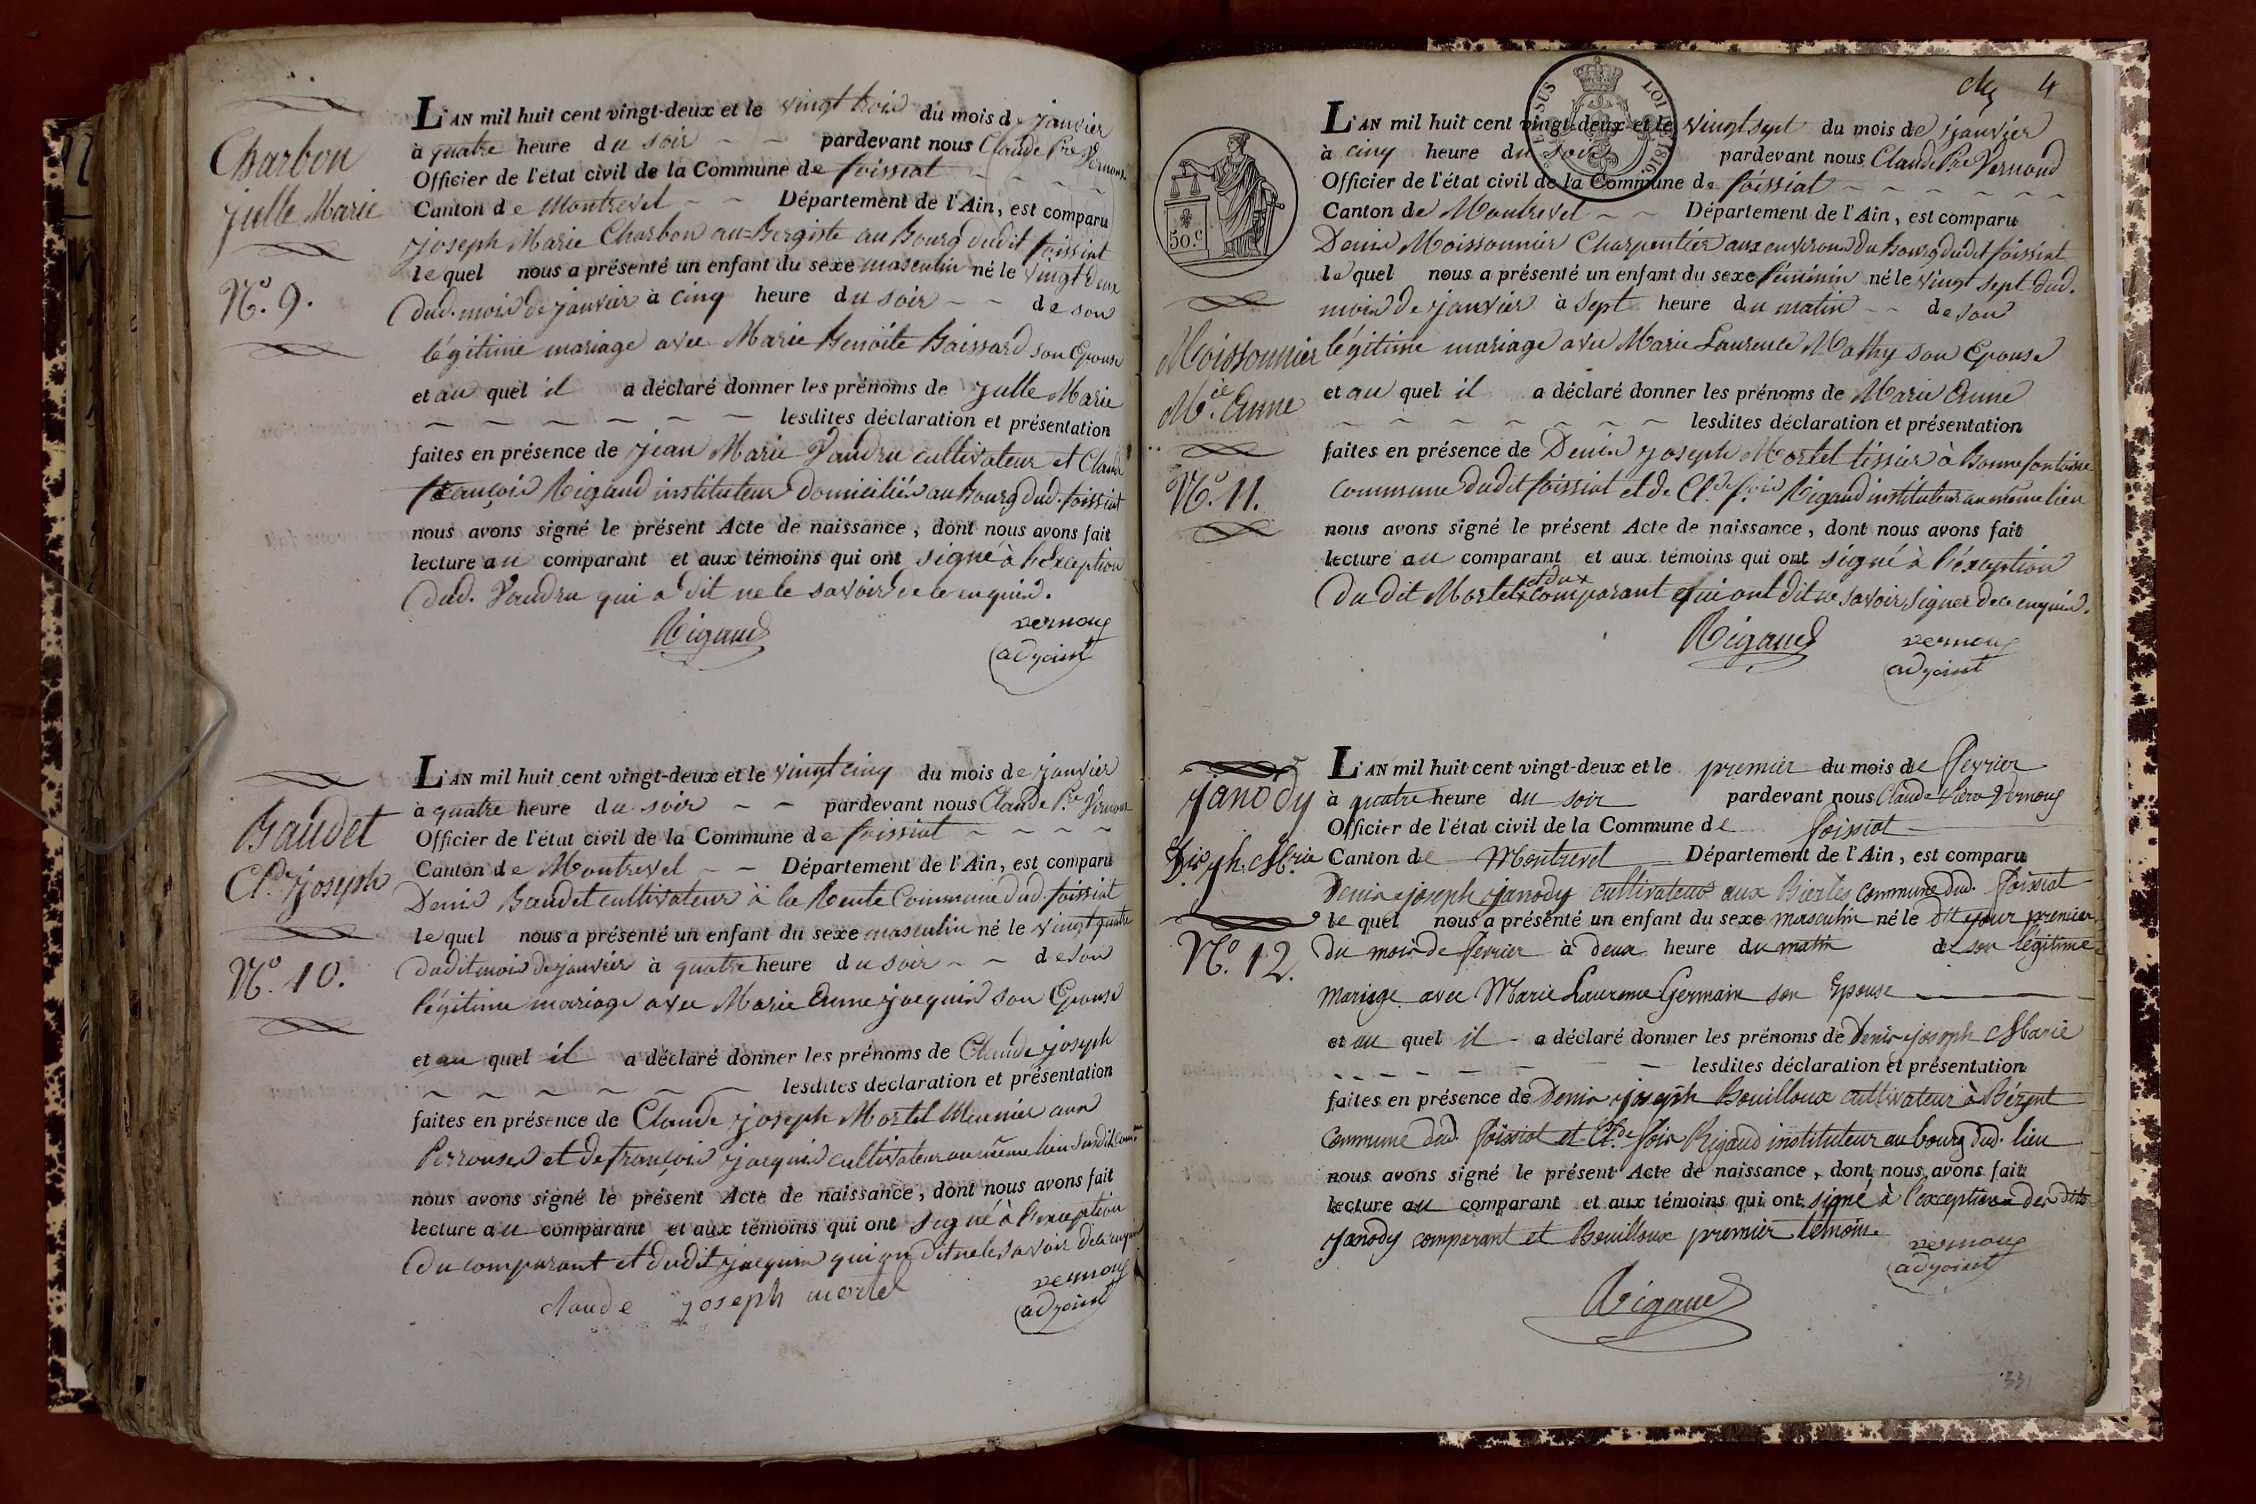 Charbon
julle Marie
N.º 9.
L'AN mil huit cent vingt-deux et le vingt trois du mois de janvier
à quatre heure du soir pardevant nous Claude P.re Vernoux
Officier de l'état civil de la Commune de foissiat
Canton de Montrevel Département de l'Ain, est comparu
joseph Marie Charbon au=Bergiste au Bourg dudit foissiat
lequel nous a présenté un enfant du sexe masculin né le vingt deux
dud. mois de janvier à cinq heure du soir de son
légitime mariage avec Marie Benoite Boissard son Epouse
et au quel il a déclaré donner les prénoms de julle Marie
lesdites déclaration et présentation
faites en présence de jean Marie Vaudru cultivateur et Claude
françois Rigaud instituteur domiciliés au Bourg dud. foissiat
nous avons signé le présent Acte de naissance, dont nous avons fait
lecture au comparant et aux témoins qui ont signé à l'exception
dud. Vaudru qui a dit ne le savoir de ce enquis.
Rigaud vernoux
adjoint
Baudet
Cl.de joseph
N.º 10.
L'AN mil huit cent vingt-deux et le vingt cinq du mois de janvier
à quatre heure du soir pardevant nous Claude P.re Vernoux
Officier de l'état civil de la Commune de foissiat
Canton de Montrevel Département de l'Ain, est comparu
Denis Baudet cultivateur à la Teute Commune dud. foissiat
lequel nous a présenté un enfant du sexe masculin né le vingt quatre
dudit mois de janvier à quatre heure du soir de son
légitime mariage avec Marie Anne jacquis son Epouse
et au quel il a déclaré donner les prénoms de Claude joseph
lesdites déclaration et présentation
faites en présence de Claude joseph Mortel Meunier aux
Perrouses et de françois jacquis cultivateur au même lieu susdit com.ne
nous avons signé le présent Acte de naissance, dont nous avons fait
lecture au comparant et aux témoins qui ont signé à l'exception
du comparant et dudit jacquis qui on dit ne le savoir de ce enquis
claude joseph mortel vernoux
adjoint
ch 4
PER SUS LOI 1816
50.C
Moissonnier
M.ie Anne
N.º 11.
L'AN mil huit cent vingt-deux et le vingt sept du mois de janvier
à cinq heure du soir pardevant nous Claude P.re Vernoud
Officier de l'état civil de la Commune de foissiat
Canton de Montrevel Département de l'Ain, est comparu
Denis Moissonnier Charpentier aux environs du Bourg dudit foissiat
le quel nous a présenté un enfant du sexe féminin né le vingt sept dud.
mois de janvier à sept heure du matin de son
légitime mariage avec Marie Laurence Mathy son Epouse
et au quel il a déclaré donner les prénoms de Marie Anne
lesdites déclaration et présentation
faites en présence de Denis joseph Mortel tissier à Bonnefontaine
commune dudit foissiat et de Cl.de f.ois Rigaud instituteur au même lieu
nous avons signé le présent Acte de naissance, dont nous avons fait
lecture au comparant et aux témoins qui ont signé à l'éxception
du dit Mortel et du comparant qui ont dit ne savoir signer de ce enquis.
Rigaud vernoux
adjoint
janody
D.is j.h M.rie
N.º 12.
L'AN mil huit cent vingt-deux et le premier du mois de fevrier
à quatre heure du soir pardevant nous Claude Piere Vernoux
Officier de l'état civil de la Commune de foissiat
Canton de Montrevel Département de l'Ain, est comparu
Denis joseph janody cultivateur aux Bierles commune dud. foissiat
le quel nous a présenté un enfant du sexe masculin né le dit jour premier
du mois de fevrier à deux heure du matin de son légitime
mariage avec Marie Laurence Germain son Epouse
et au quel il a déclaré donner les prénoms de Denis joseph Marie
lesdites déclaration et présentation
faites en présence de Denis joseph Bouilloux cultivateur à Bézent
commune dud. foissiat et Cl.de f.ois Rigaud instituteur au bourg dud. lieu
nous avons signé le présent Acte de naissance, dont nous avons fait
lecture au comparant et aux témoins qui ont signé à l'exception des dits
janody comparant et Bouilloux premier témoin.
vernoux
adjoint
Rigaud
33